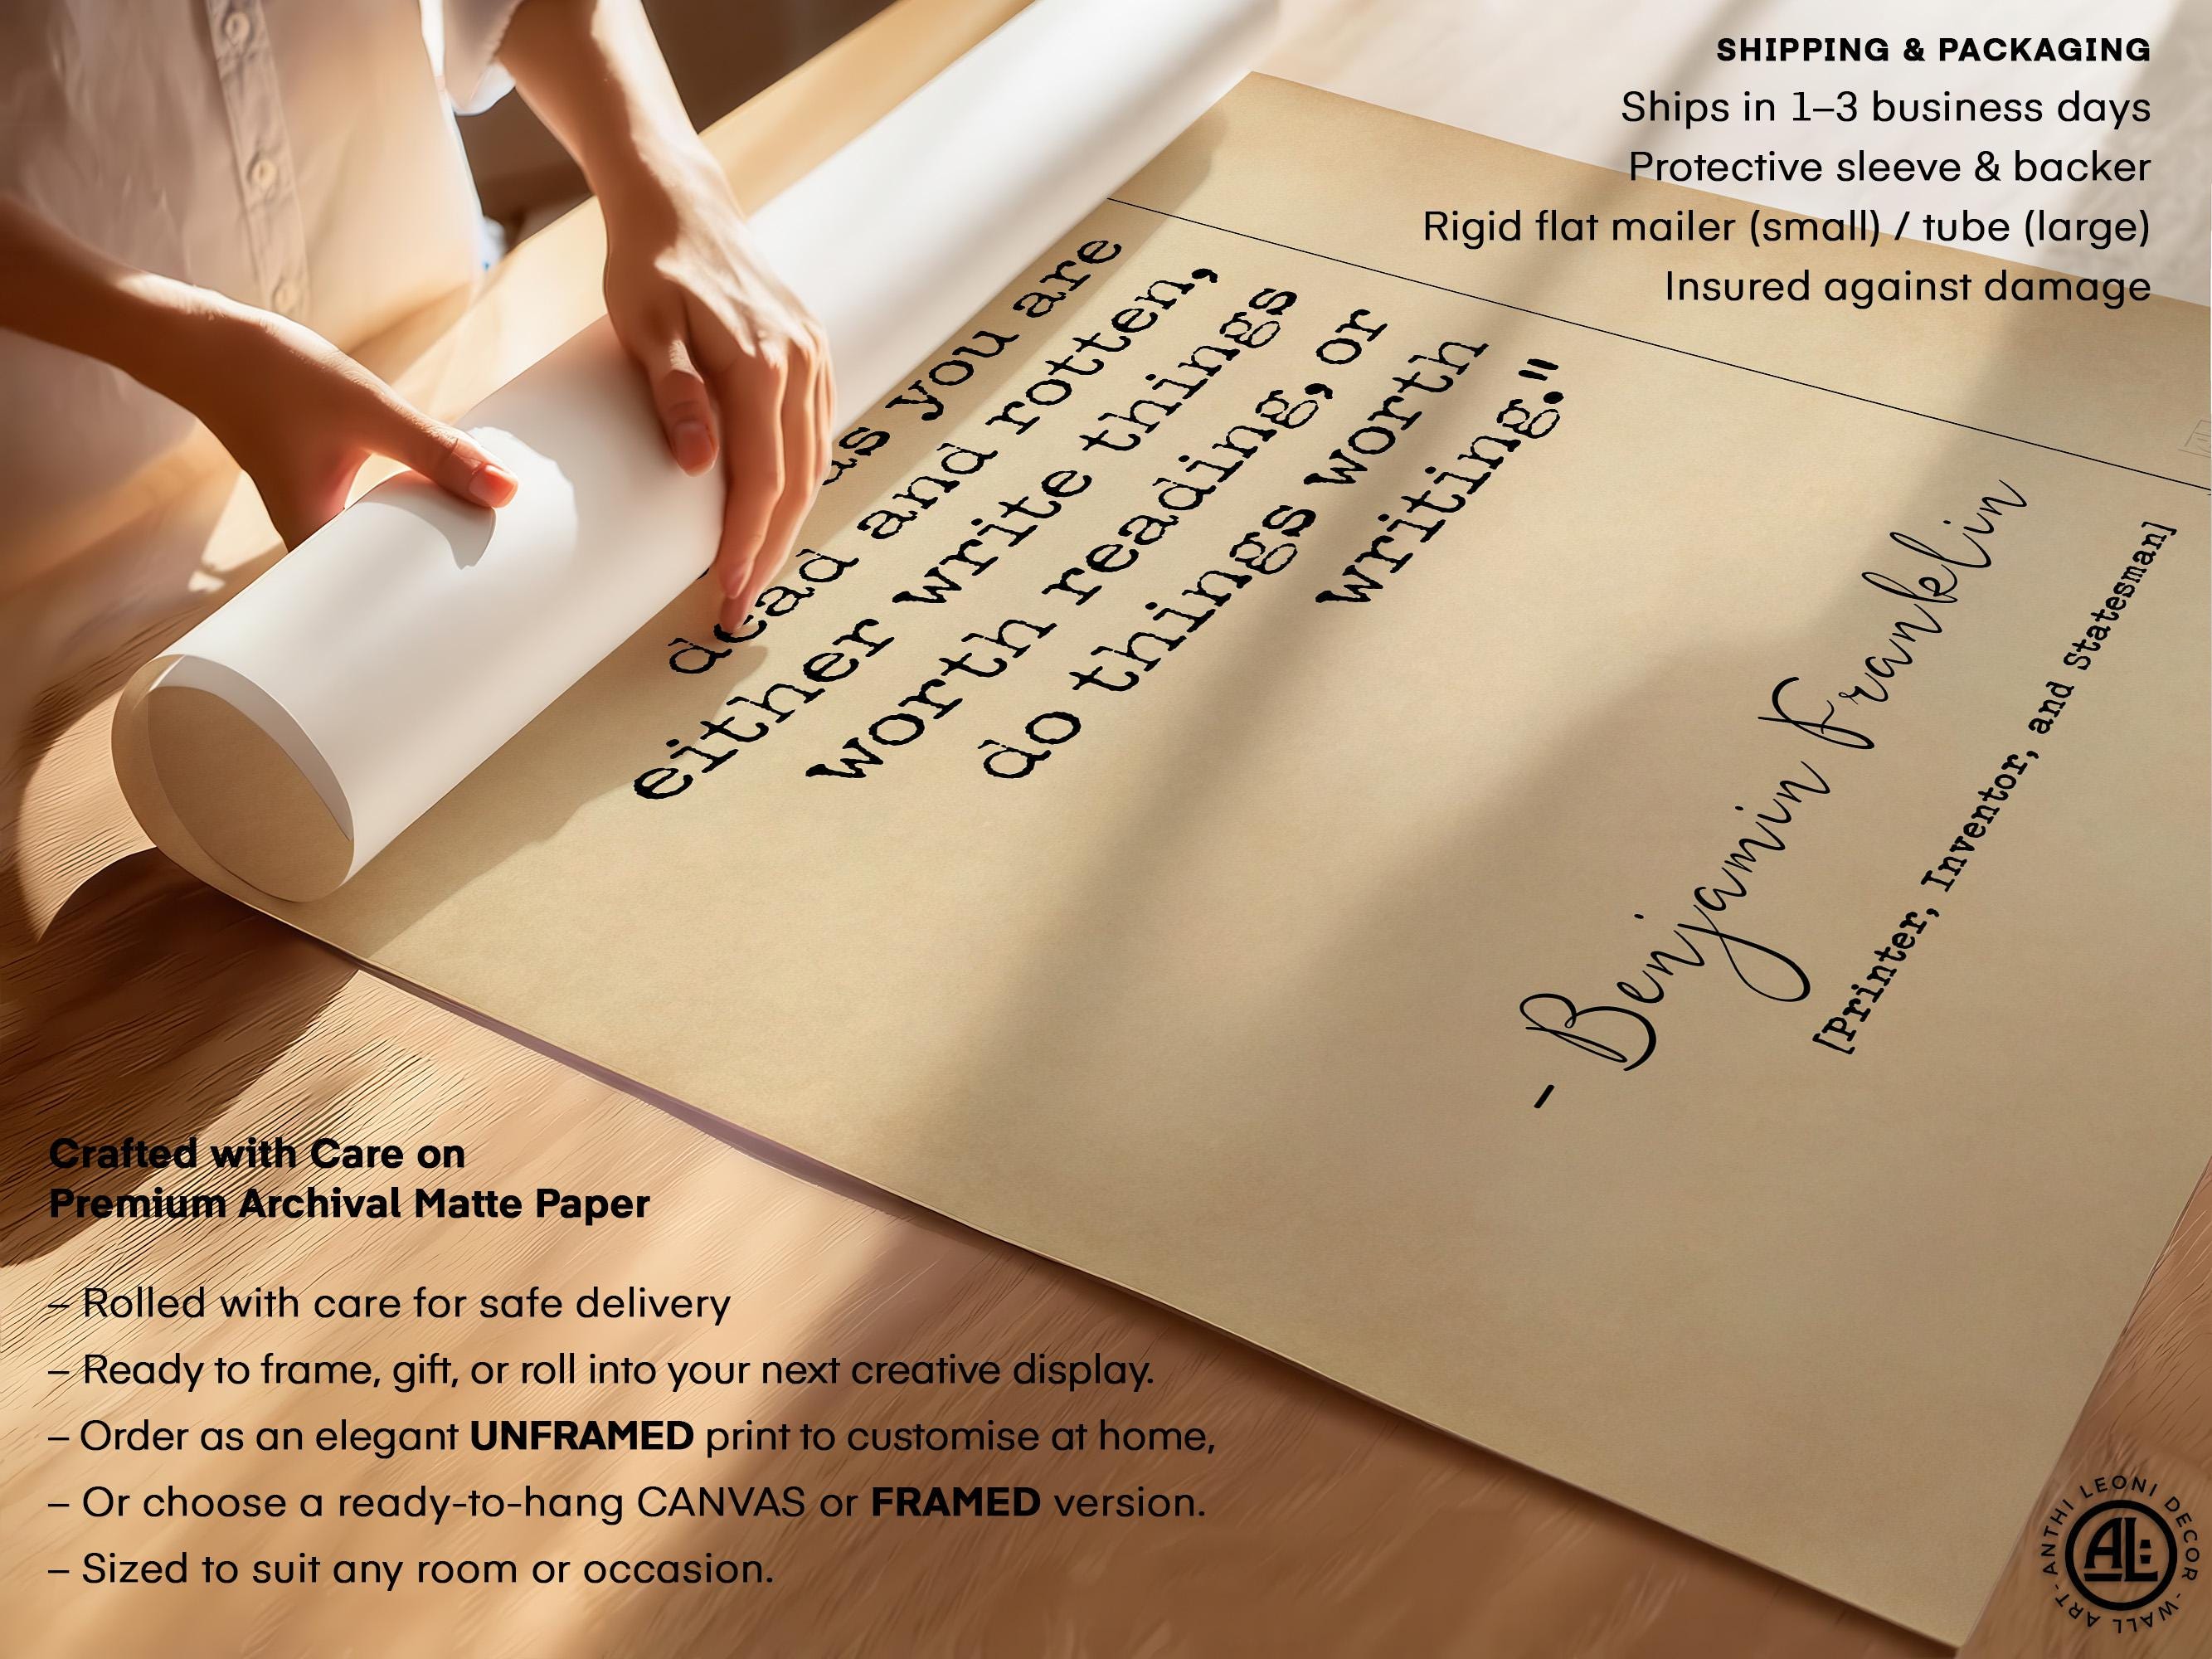 SHIPPING & PACKAGING
Ships in 1–3 business days
Protective sleeve & backer
Rigid flat mailer (small) / tube (large)
Insured against damage
as you are
dead and rotten,
either write things
worth reading, or
do things worth
writing."
- Benjamin Franklin
[Printer, Inventor, and Statesman]
Crafted with Care on
Premium Archival Matte Paper
– Rolled with care for safe delivery
– Ready to frame, gift, or roll into your next creative display.
– Order as an elegant UNFRAMED print to customise at home,
– Or choose a ready-to-hang CANVAS or FRAMED version.
– Sized to suit any room or occasion.
ANTHI LEONI DECOR - WALL ART -
AL